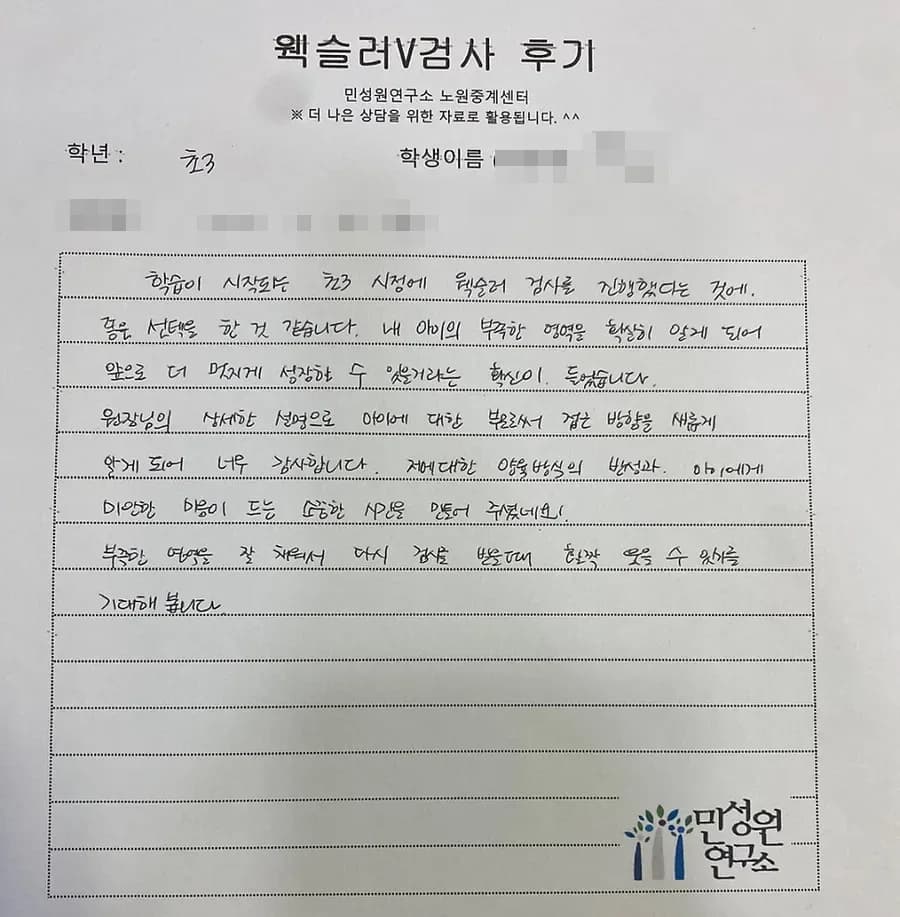 웩슬러V검사 후기
민성원연구소 노원중계센터
※ 더 나은 상담을 위한 자료로 활용됩니다. ^^
학년 : 초3 학생이름
학습이 시작되는 초3 시점에 웩슬러 검사를 진행했다는 것에.
좋은 선택을 한 것 같습니다. 내 아이의 부족한 영역을 확실히 알게 되어
앞으로 더 멋지게 성장할 수 있을거라는 확신이 들었습니다.
원장님의 상세한 설명으로 아이에 대한 부모로써 접근 방향을 새롭게
알게 되어 너무 감사합니다. 저에대한 양육방식의 반성과. 아이에게
미안한 마음이 드는 소중한 시간을 만들어 주셨네요!
부족한 영역을 잘 채워서 다시 검사를 받을때 활짝 웃을 수 있기를
기대해 봅니다.
민성원
연구소